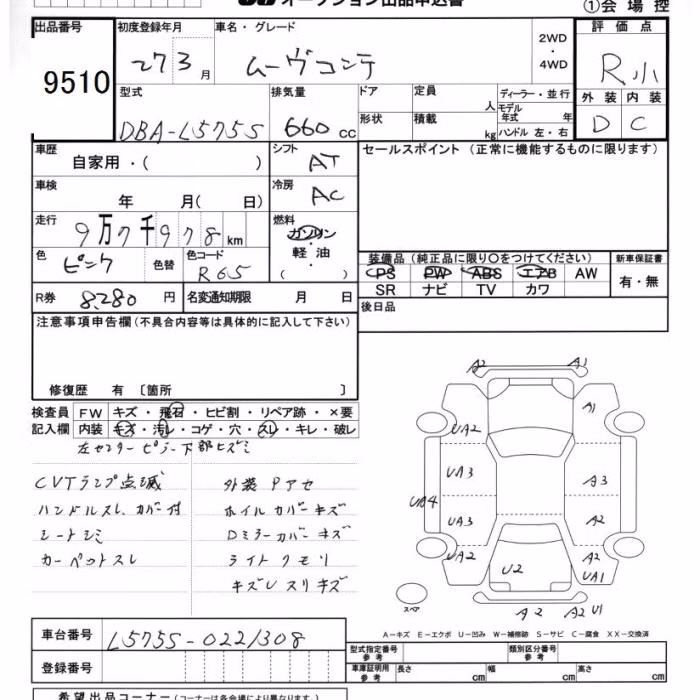 オークション出品申込書
①会場控
出品番号 9510
初度登録年月 27 3月
車名・グレード ムーヴコンテ
2WD・4WD
評価点 R小
外装 D 内装 C
型式 DBA-L575S
排気量 660cc
ドア
形状
定員 人
積載 kg
ディーラー・並行
モデル年式 年
ハンドル 左・右
車歴 自家用・( )
シフト AT
セールスポイント (正常に機能するものに限ります)
車検 年 月( 日)
冷房 AC
走行 9万7千978km
燃料 ガソリン・軽油・( )
色 ピンク 色替
色コード R65
装備品 (純正品に限り〇をつけてください)
新車保証書
PS PW ABS エアB AW
有・無
SR ナビ TV カワ
R券 8,280円
名変通知期限 月 日
後日品
注意事項申告欄 (不具合内容等は具体的に記入して下さい)
修復歴 有 〔箇所 〕
検査員 FW キズ・飛石・ヒビ割・リペア跡・×要
記入欄 内装 キズ・汚レ・コゲ・穴・スレ・キレ・破レ
左センターピラー下部ヒズミ
CVTランプ点滅
外装 Pアセ
ハンドルスレ、カバー付
ホイルカバーキズ
シートシミ
Dミラーカバーキズ
カーペットスレ
ライトクモリ
キズUスリキズ
A2 A1
A1
UA2
UA3 A3
UA4
UA3 A2
UA2 A2
U2 UA1
A2 A2 U1
スペア
A-キズ E-エクボ U-凹み W-補修跡 S-サビ C-腐食 XX-交換済
車台番号 L575S-0221308
型式指定番号 参考
類別区分番号 参考
登録番号
車庫証明用 参考 長さ cm 幅 cm 高さ cm
希望出品コーナー (コーナーは各会場により異なります。)